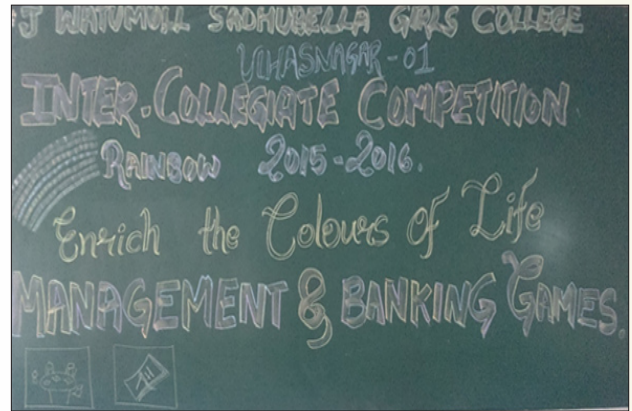 J WATUMULL SADHUBELLA GIRLS COLLEGE
ULHASNAGAR-01
INTER-COLLEGIATE COMPETITION
RAINBOW 2015-2016.
Enrich the Colours of Life
MANAGEMENT & BANKING GAMES.